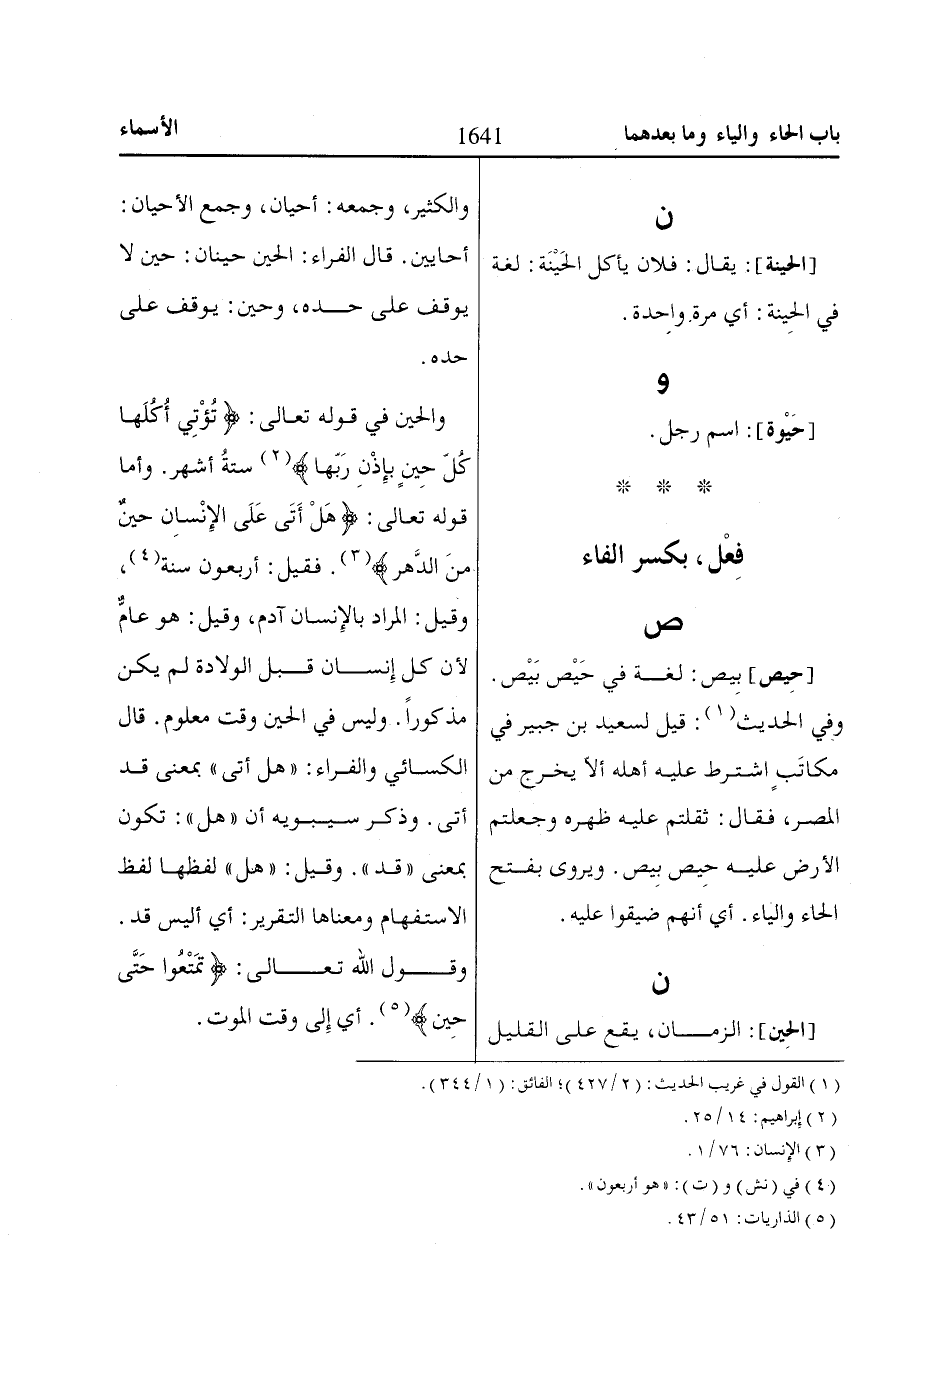 باب الحاء والياء وما بعدهما
1641
الأسماء
ن
[الحينة]: يقال: فلان يأكل الحَيْنَة: لغة
في الحِينة: أي مرة واحدة.
و
[حَيْوة]: اسم رجل.
* * *
فِعْل، بكسر الفاء
ص
[حِيص] بِيص: لغة في حَيْص بَيْص.
وفي الحديث(١): قيل لسعيد بن جبير في
مكاتَبٍ اشترط عليه أهله ألا يخرج من
المصر، فقال: ثقلتم عليه ظهره وجعلتم
الأرض عليه حِيص بِيص. ويروى بفتح
الحاء والياء. أي أنهم ضيقوا عليه.
ن
[الحِين]: الزمان، يقع على القليل
والكثير، وجمعه: أحيان، وجمع الأحيان:
أحايين. قال الفراء: الحين حينان: حين لا
يوقف على حده، وحين: يوقف على
حده.
والحين في قوله تعالى: ﴿تُؤْتِي أُكُلَها
كُلّ حِينٍ بِإِذْنِ رَبّها﴾(٢) ستةُ أشهر. وأما
قوله تعالى: ﴿هَلْ أَتَى عَلَى الإِنْسانِ حينٌ
مِنَ الدَّهر﴾(٣). فقيل: أربعون سنة(٤)،
وقيل: المراد بالإنسان آدم، وقيل: هو عامٌّ
لأن كل إنسان قبل الولادة لم يكن
مذكوراً. وليس في الحين وقت معلوم. قال
الكسائي والفراء: «هل أتى» بمعنى قد
أتى. وذكر سيبويه أن «هل»: تكون
بمعنى «قد». وقيل: «هل» لفظها لفظ
الاستفهام ومعناها التقرير: أي أليس قد.
وقول الله تعالى: ﴿تَمَتْعُوا حَتَّى
حِين﴾(٥). أي إلى وقت الموت.
(١) القول في غريب الحديث: (٤٢٧/٢)؛ الفائق: (٣٤٤/١).
(٢) إبراهيم: ٢٥/١٤.
(٣) الإنسان: ١/٧٦.
(٤) في (نش) و(ت): «هو أربعون».
(٥) الذاريات: ٤٣/٥١.